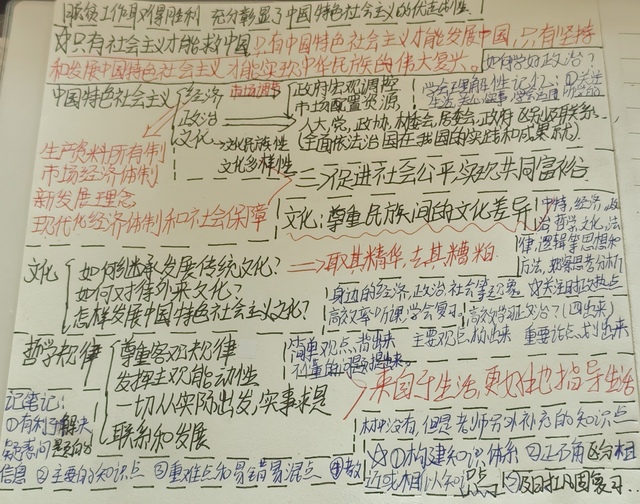 脱贫工作取得胜利 充分彰显了中国特色社会主义的优越性
只有社会主义才能救中国,只有中国特色社会主义才能发展中国,只有坚持
和发展中国特色社会主义才能实现中华民族的伟大复兴。
如何学好政治?
中国特色社会主义
经济
政治
文化
市场调节
政府宏观调控
市场配置资源
人大,党,政协,村委会,居委会,政府
(全面依法治国在我国的实践和成果状)
文化民族性
文化多样性
生产资料所有制
市场经济体制
新发展理念
现代化经济体制和社会保障
促进社会公平,实现共同富裕
文化:尊重民族间的文化差异
中特,经济,政
治,哲学,文化,法
律,逻辑等思想和
方法,观察思考分析
文化
如何继承发展传统文化?
如何对待外来文化?
怎样发展中国特色社会主义文化?
取其精华,去其糟粕
身边的经济,政治,社会等现象
关注时政热点
高效率听课,学会复习
高效学习政治?(四出来)
简单观点,背出来
主要观点,标出来
重要论点,划出来
哲学规律
尊重客观规律
发挥主观能动性
一切从实际出发,实事求是
联系和发展
来自于生活,更好地指导生活
记笔记:
①有利于解决
疑难问
信息 ②主要的知识点 ③重难点和易错易混点 ④教
材中没有,但是老师另外补充的知识点
①构建知识体系 ②正反角区分相
近或相似知识点 ③及时巩固复习.